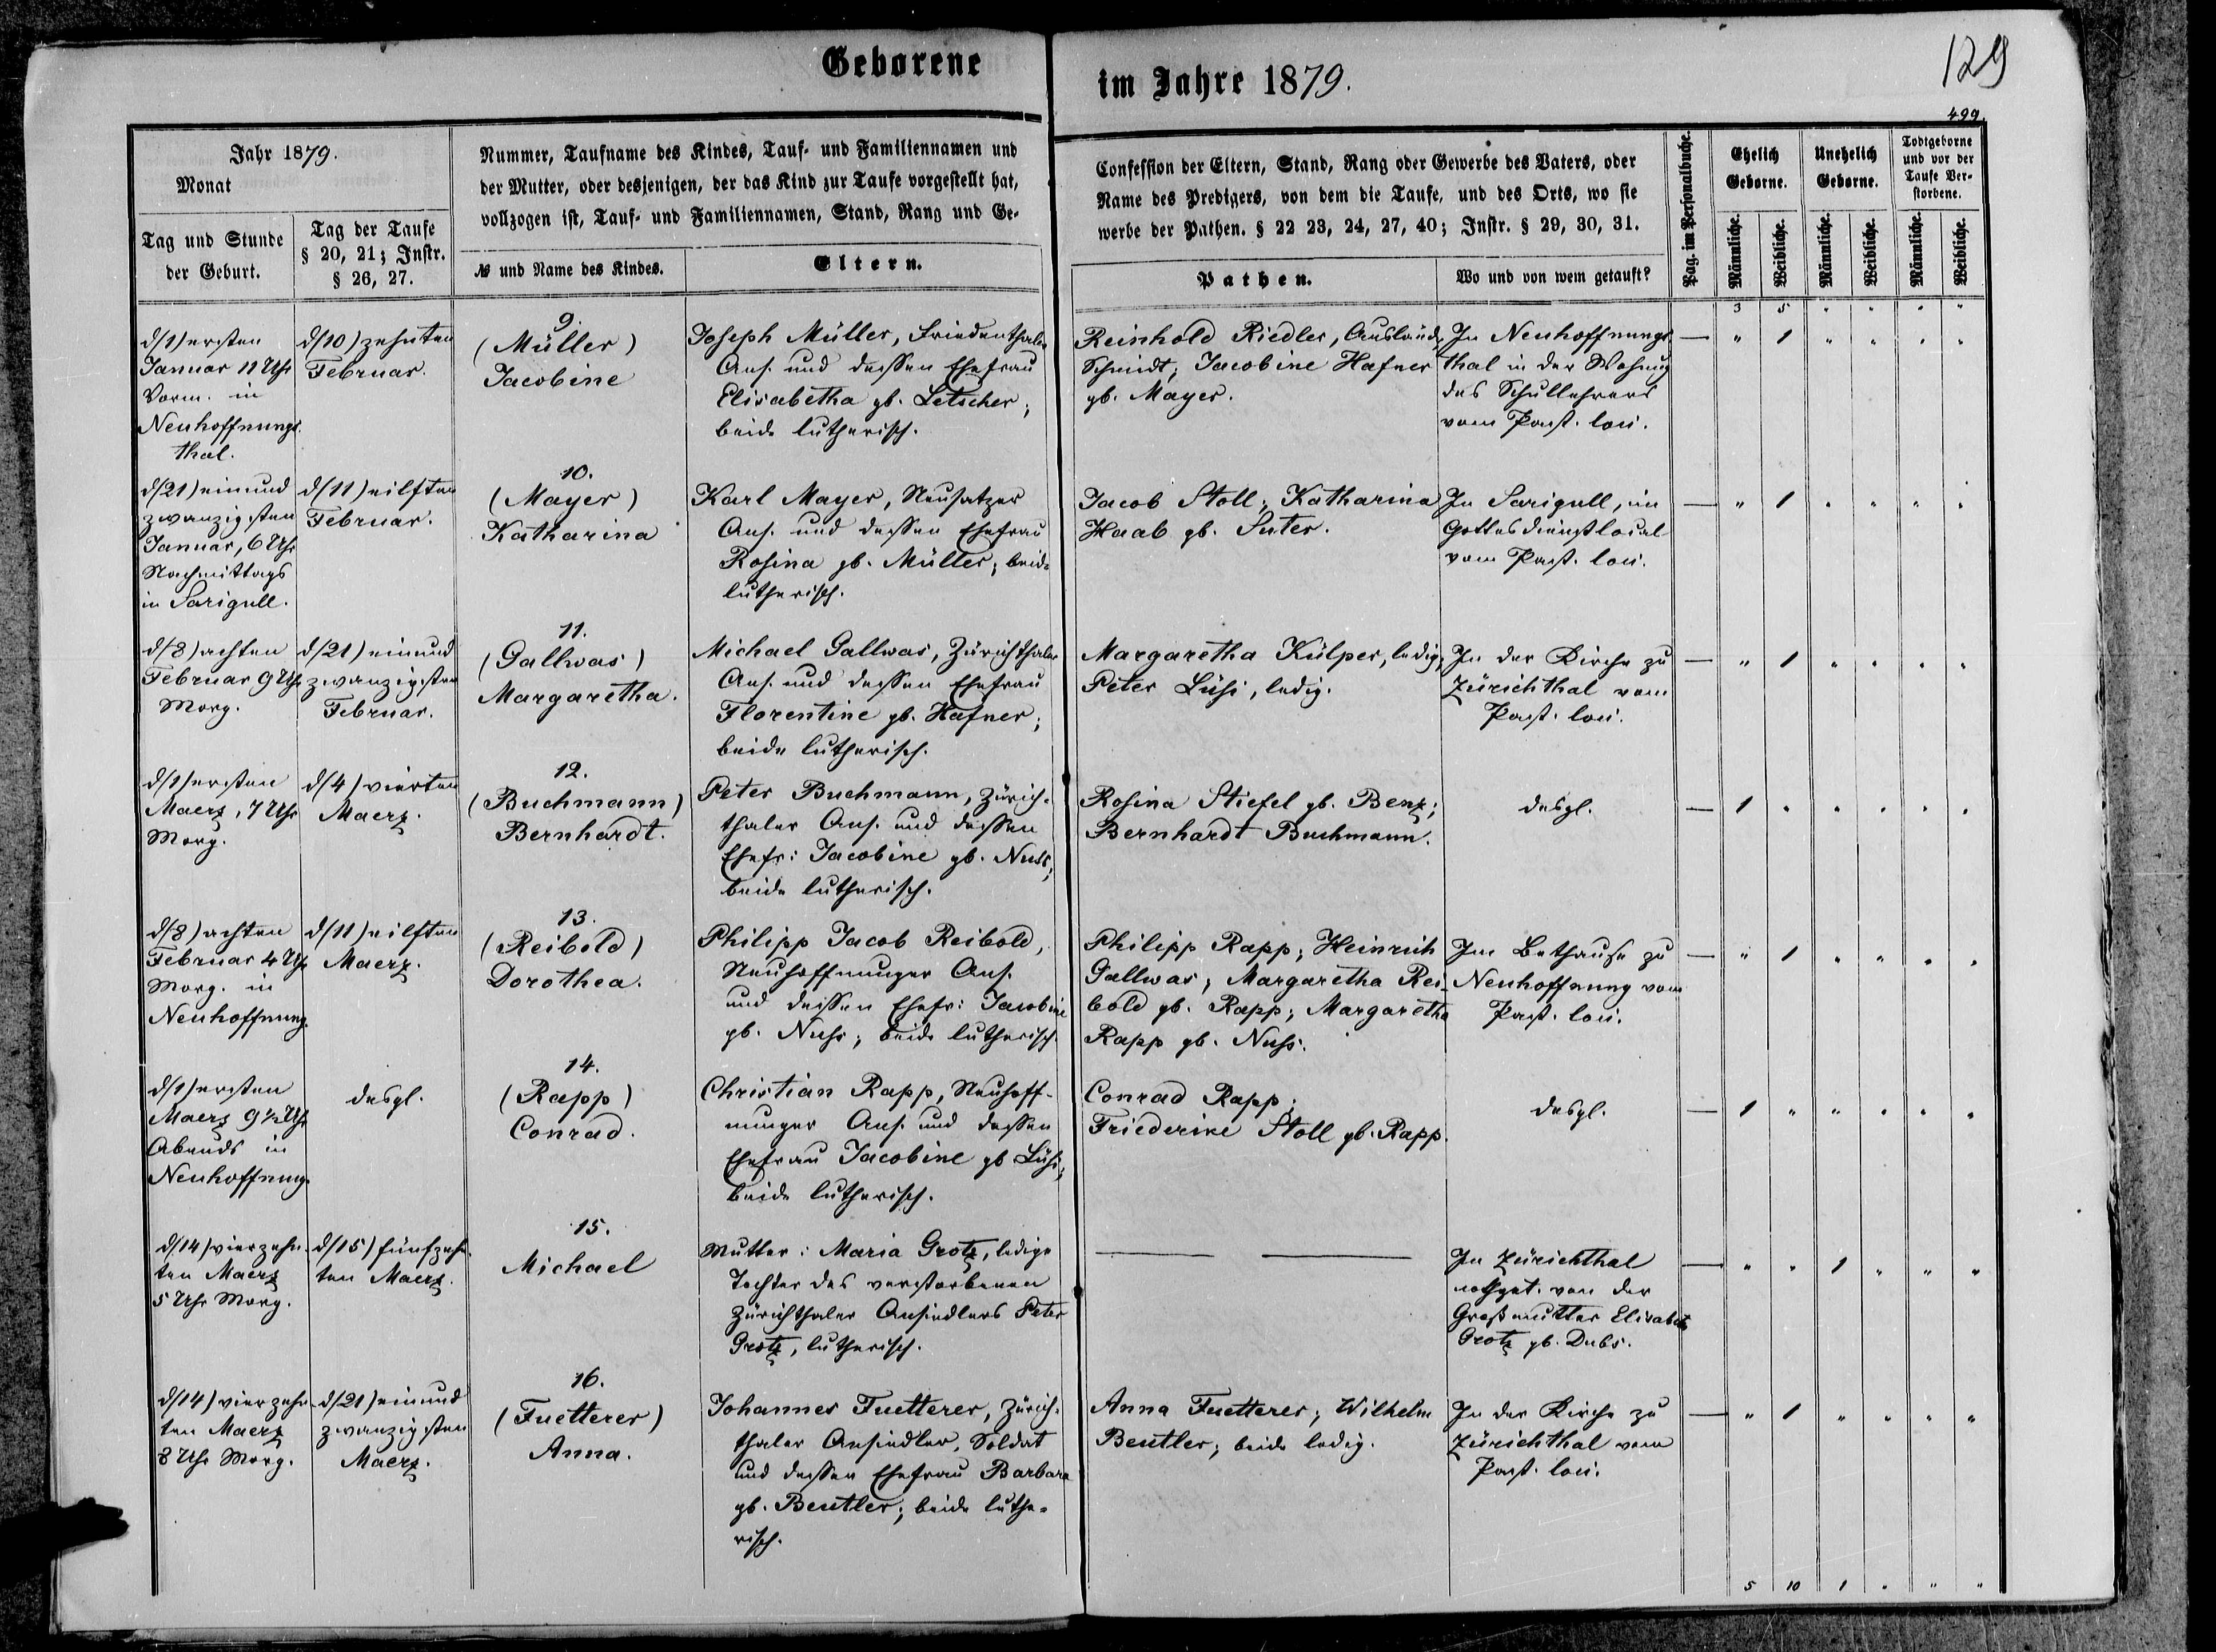 Geborene
im Jahre 1879.
129
499.
Jahr 1879.
Monat
Tag und Stunde
der Geburt.
Tag der Taufe
§ 20, 21; Instr.
§ 26, 27.
Nummer, Taufname des Kindes, Tauf- und Familiennamen und
der Mutter, oder desjenigen, der das Kind zur Taufe vorgestellt hat,
vollzogen ist, Tauf- und Familiennamen, Stand, Rang und Ge-
№ und Name des Kindes.
Eltern.
Confession der Eltern, Stand, Rang oder Gewerbe des Vaters, oder
Name des Predigers, von dem die Taufe, und des Orts, wo sie
werbe der Pathen. § 22 23, 24, 27, 40; Instr. § 29, 30, 31.
Pathen.
Wo und von wem getauft?
Pag. im Personalbuche.
Ehelich
Geborne.
Unehelich
Geborne.
Todtgeborne
und vor der
Taufe Ver-
storbene.
Männliche.
Weibliche.
Männliche.
Weibliche.
Männliche.
Weibliche.
3 5 " " " "
d/1) ersten
Januar 11 Uhr
Vorm. in
Neuhoffnungs-
thal.
d/10) zehnten
Februar.
9.
(Müller)
Jacobine
Joseph Müller, Friedenthaler
Ans. und dessen Ehefrau
Elisabetha gb. Letscher;
beide lutherisch.
Reinhold Riedler, Ausländ.
Schmidt; Jacobine Hafner
gb. Mayer.
In Neuhoffnungs-
thal in der Wohnung
des Schullehrers
vom Past. loci.
— " 1 " " " "
d/21) einund
zwanzigsten
Januar, 6 Uhr
Nachmittags
in Sarigull.
d/11) eilften
Februar.
10.
(Mayer)
Katharina
Karl Mayer, Neusatzer
Ans. und dessen Ehefrau
Rosina gb. Müller; beide
lutherisch.
Jacob Stoll; Katharina
Haab gb. Suter.
In Sarigull, im
Gottesdienstlocal
vom Past. loci.
— " 1 " " " "
d/8) achten
Februar 9 Uhr
Morg.
d/21) einund
zwanzigsten
Februar.
11.
(Gallwas)
Margaretha.
Michael Gallwas, Zürichthaler
Ans. und dessen Ehefrau
Florentine gb. Hafner;
beide lutherisch.
Margaretha Külper, ledig;
Peter Lüssi, ledig.
In der Kirche zu
Zürichthal vom
Past. loci.
— " 1 " " " "
d/1) ersten
Maerz, 7 Uhr
Morg.
d/4) vierten
Maerz.
12.
(Buchmann)
Bernhardt.
Peter Buchmann, Zürich-
thaler Ans. und dessen
Ehefr: Jacobine gb. Nuss;
beide lutherisch.
Rosina Stiefel gb. Benz;
Bernhardt Buchmann.
desgl.
— 1 " " " " "
d/8) achten
Februar 4 Uhr
Morg. in
Neuhoffnung.
d/11) eilften
Maerz.
13.
(Reibold)
Dorothea.
Philipp Jacob Reibold,
Neuhoffnunger Ans.
und dessen Ehefr: Jacobine
gb. Nuss; beide lutherisch.
Philipp Rapp; Heinrich
Gallwas; Margaretha Rei-
bold gb. Rapp; Margaretha
Rapp gb. Nuss.
Im Bethause zu
Neuhoffnung vom
Past. loci.
— " 1 " " " "
d/1) ersten
Maerz 9½ Uhr
Abends in
Neuhoffnung
desgl.
14.
(Rapp)
Conrad.
Christian Rapp, Neuhoff-
nunger Ans. und dessen
Ehefrau Jacobine gb Lüssi;
beide lutherisch.
Conrad Rapp;
Friederike Stoll gb. Rapp.
desgl.
— 1 " " " " "
d/14) vierzehn-
ten Maerz
5 Uhr Morg.
d/15) fünfzehn-
ten Maerz.
15.
Michael
Mutter: Maria Grotz, ledige
Tochter des verstorbenen
Zürichthaler Ansiedlers Peter
Grotz, lutherisch.
— —
In Zürichthal
nothget. von der
Großmutter Elisabeth
Grotz gb. Dubs.
— " " 1 " " "
d/14) vierzehn-
ten Maerz
8 Uhr Morg.
d/21) einund
zwanzigsten
Maerz.
16.
(Fuetterer)
Anna.
Johannes Fuetterer, Zürich-
thaler Ansiedler, Soldat
und dessen Ehefrau Barbara
gb. Beutler; beide luthe-
risch.
Anna Fuetterer; Wilhelm
Beutler; beide ledig.
In der Kirche zu
Zürichthal vom
Past. loci.
— " 1 " " " "
5 10 1 " " "